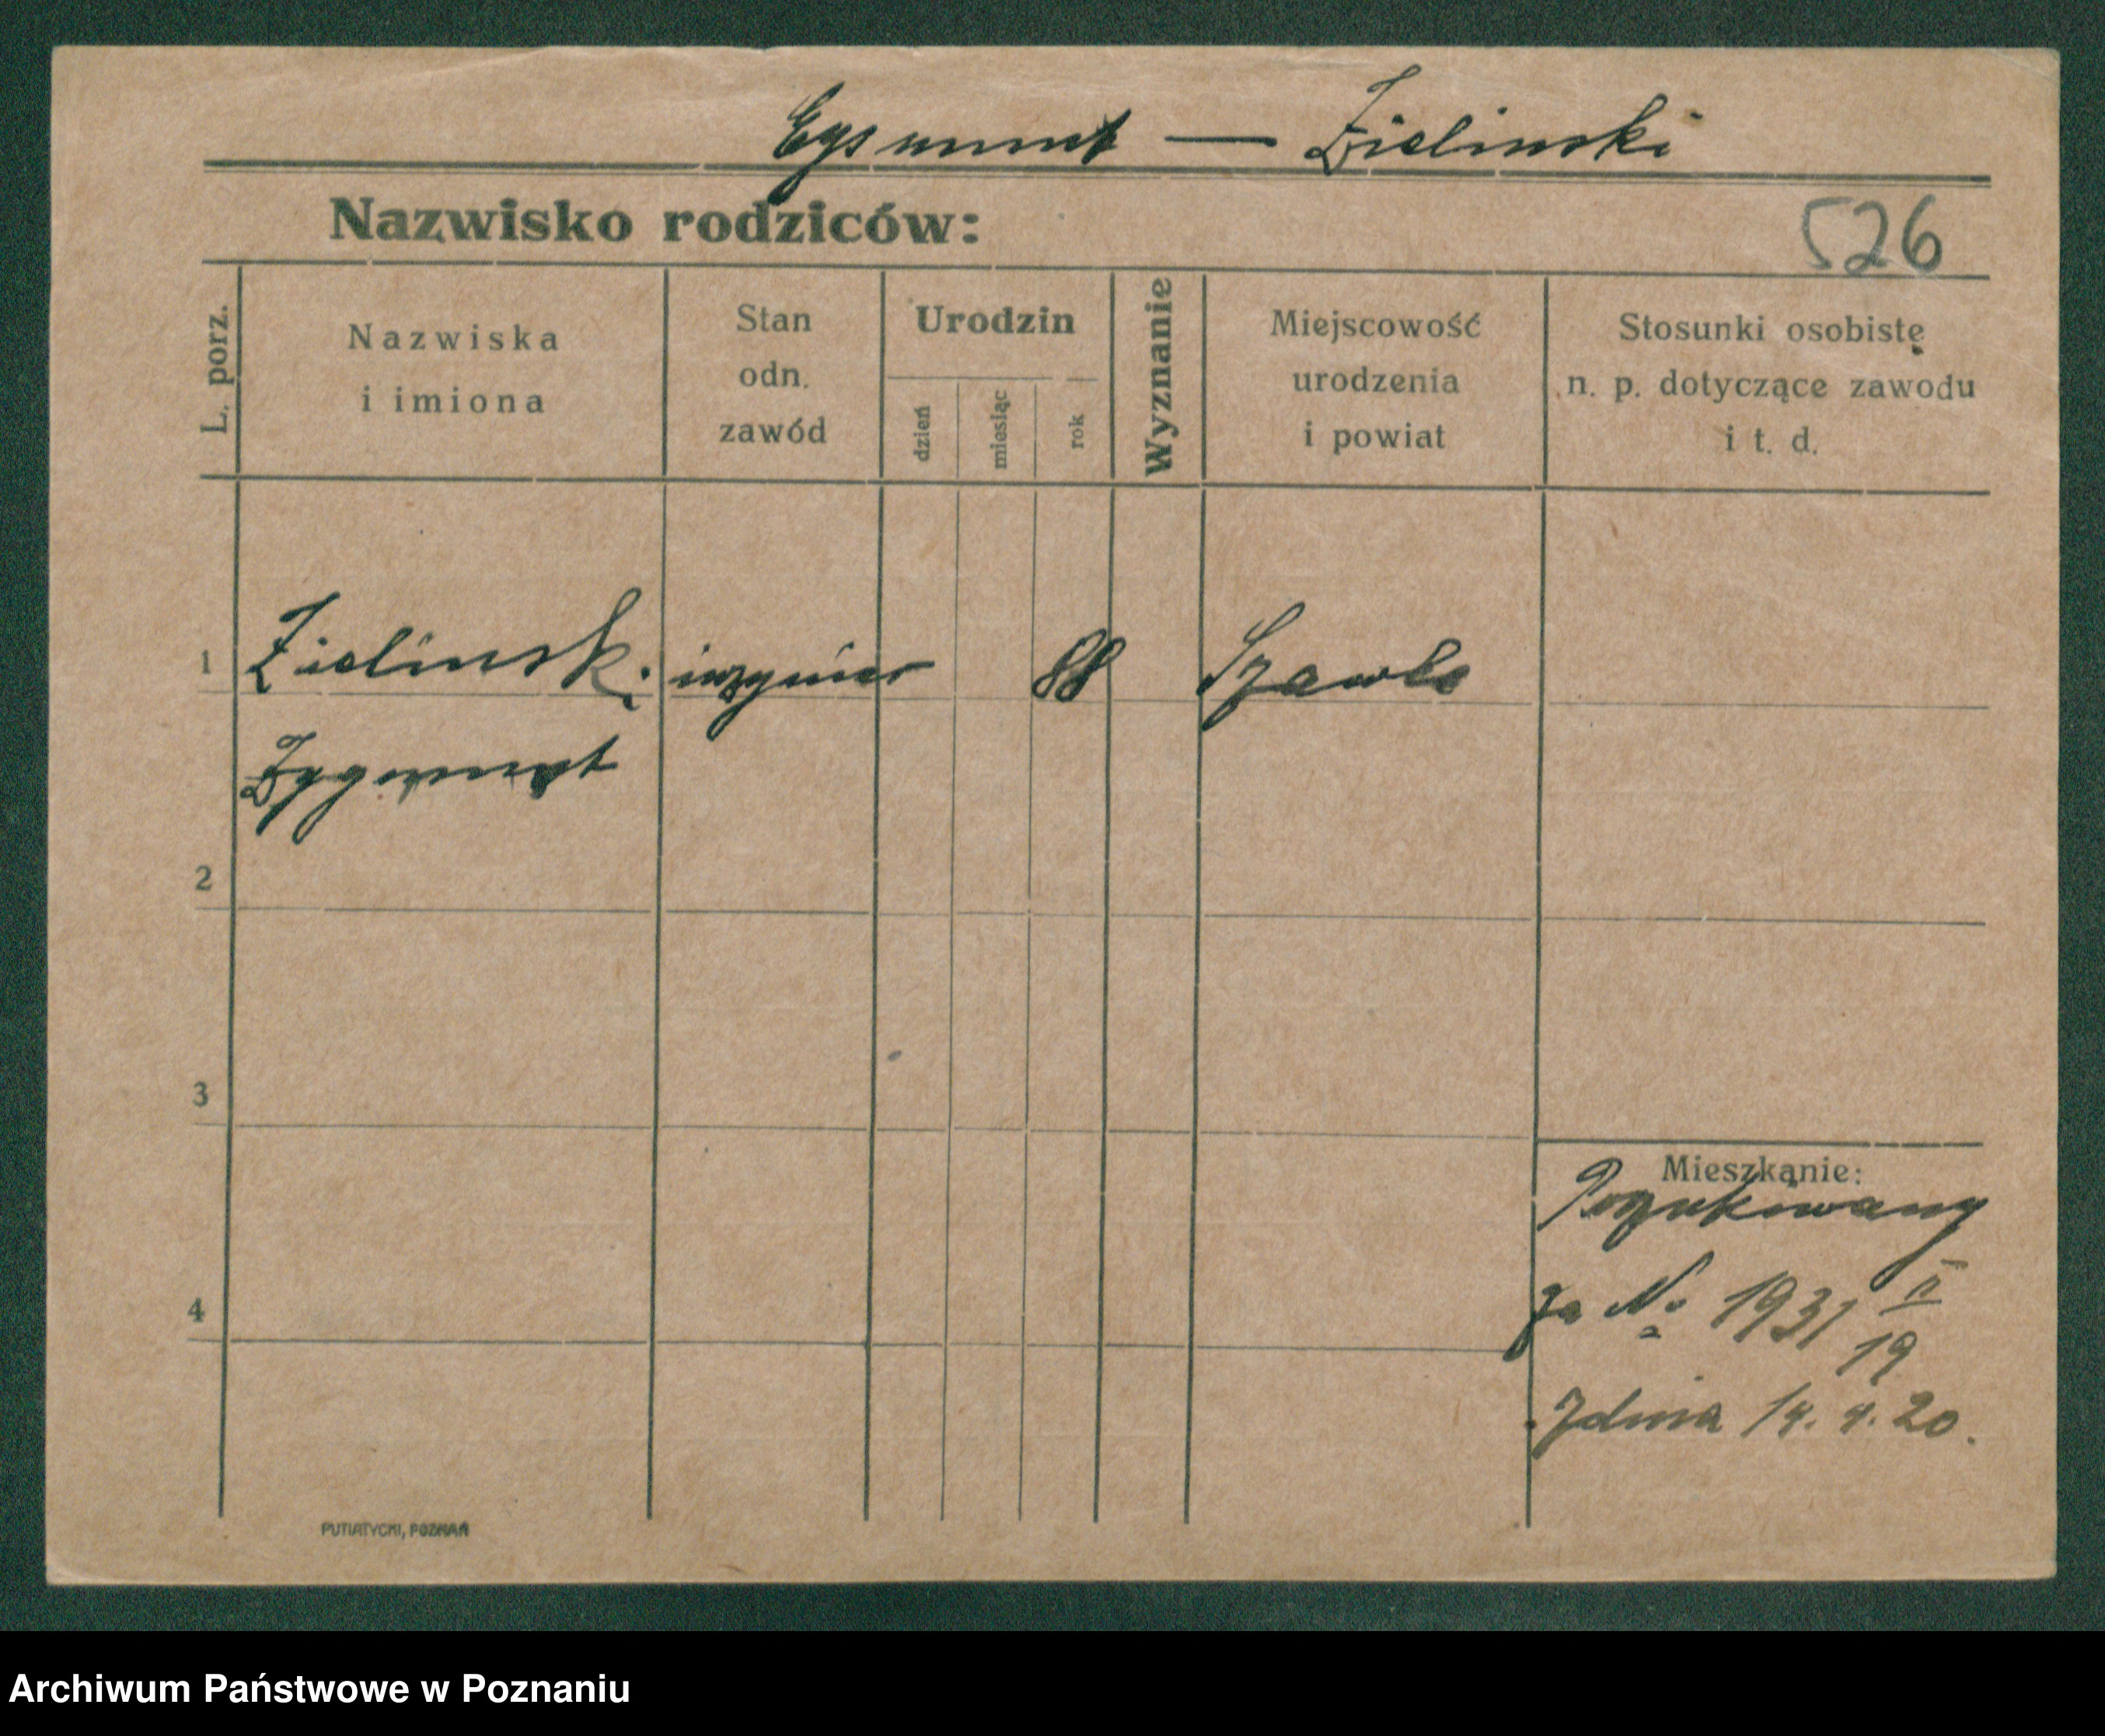 Egsmunt — Zielinski
Nazwisko rodziców:
526
L. porz.
Nazwiska
i imiona
Stan
odn.
zawód
Urodzin
dzień
miesiąc
rok
Wyznanie
Miejscowość
urodzenia
i powiat
Stosunki osobiste
n. p. dotyczące zawodu
i t. d.
1
Zielinski
inzynier
88
Szawle
Zygmunt
2
3
4
Mieszkanie:
Poszukiwany
za No 1931 II
19
Zdnia 14. 4. 20.
PUTIATYCKI, POZNAŃ
Archiwum Państwowe w Poznaniu